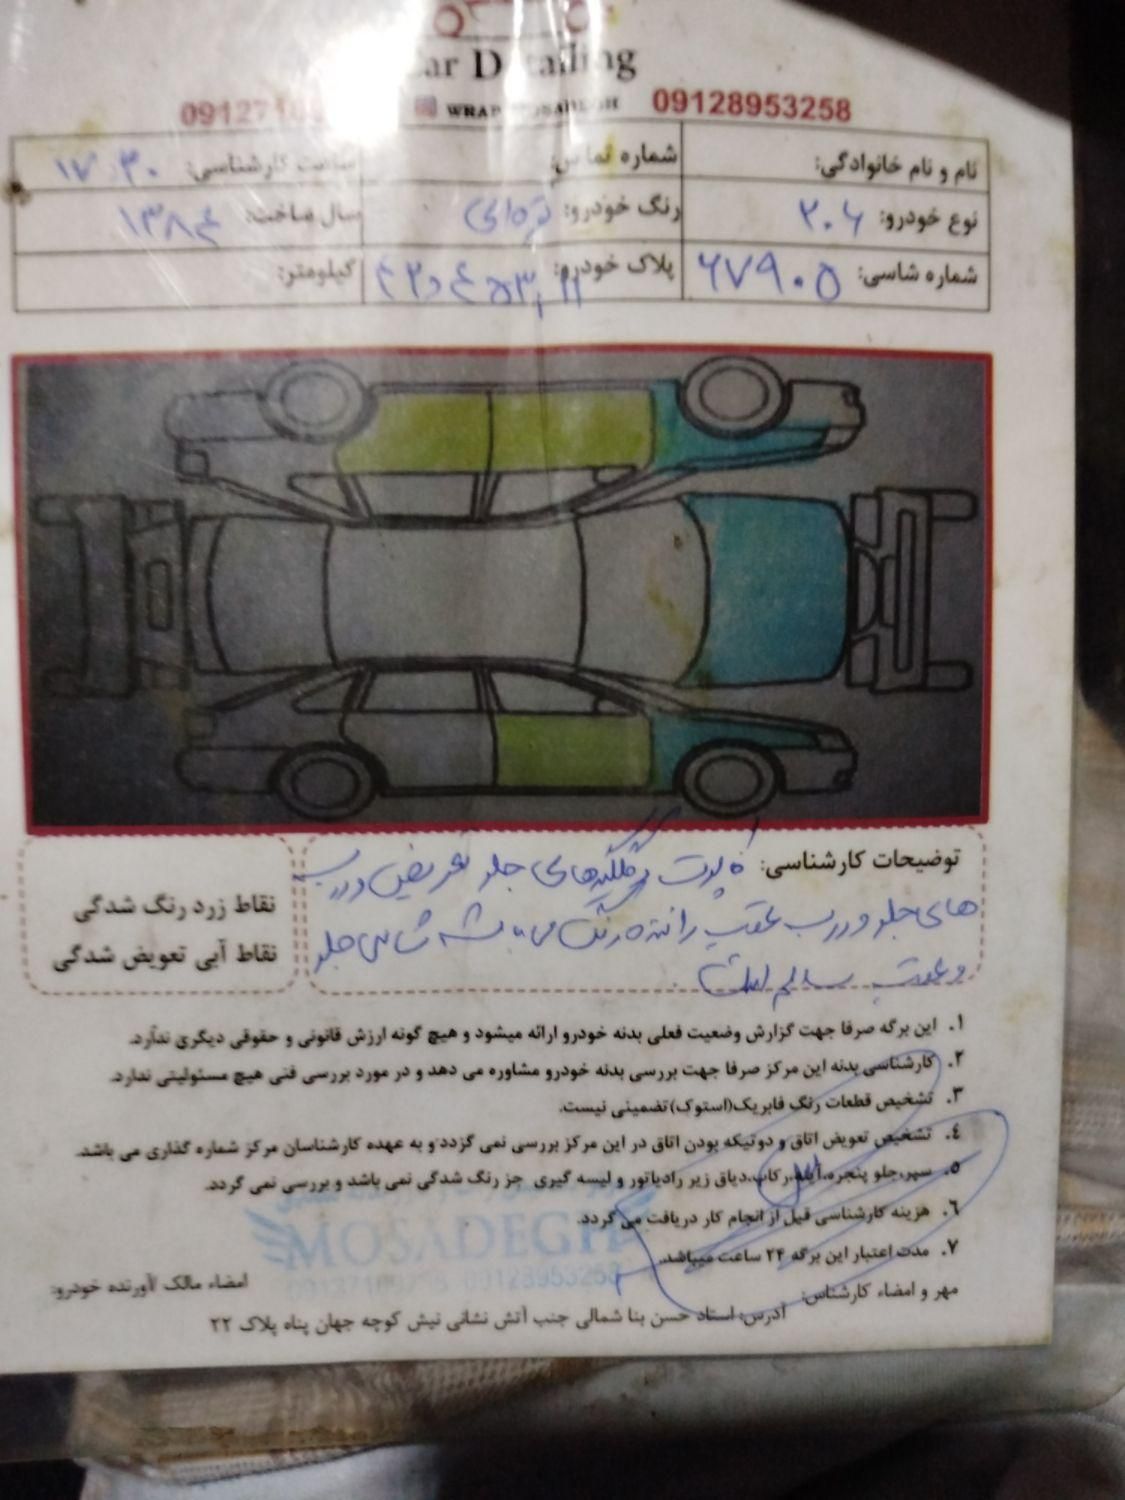 Car Detailing
WRAP MOSADEGH
09128953258
نام و نام خانوادگی:
شماره تماس:
ساعت کارشناسی: ۱۷:۳۰
نوع خودرو: ۲۰۶
رنگ خودرو: نقره‌ای
سال ساخت: ۱۳۸۴
شماره شاسی: ۶۷۹۰۵
پلاک خودرو:
کیلومتر:
توضیحات کارشناسی: کاپوت و گلگیرهای جلو تعویض و درب
های جلو و درب عقب راننده رنگ می باشد شاسی جلو
و عقب سالم است.
نقاط زرد رنگ شدگی
نقاط آبی تعویض شدگی
۱. این برگه صرفا جهت گزارش وضعیت فعلی بدنه خودرو ارائه میشود و هیچ گونه ارزش قانونی و حقوقی دیگری ندارد.
۲. کارشناسی بدنه این مرکز صرفا جهت بررسی بدنه خودرو مشاوره می دهد و در مورد بررسی فنی هیچ مسئولیتی ندارد.
۳. تشخیص قطعات رنگ فابریک(استوک)تضمینی نیست.
۴. تشخیص تعویض اتاق و دوتیکه بودن اتاق در این مرکز بررسی نمی گردد و به عهده کارشناسان مرکز شماره گذاری می باشد.
۵. سپر،جلو پنجره،آینه،رکاب،دیاق زیر رادیاتور و لیسه گیری جز رنگ شدگی نمی باشد و بررسی نمی گردد.
۶. هزینه کارشناسی قبل از انجام کار دریافت می گردد.
۷. مدت اعتبار این برگه ۲۴ ساعت میباشد.
MOSADEGH
09128953258
مهر و امضاء کارشناس:
امضاء مالک /آورنده خودرو:
آدرس: استاد حسن بنا شمالی جنب آتش نشانی نبش کوچه جهان پناه پلاک ۲۲